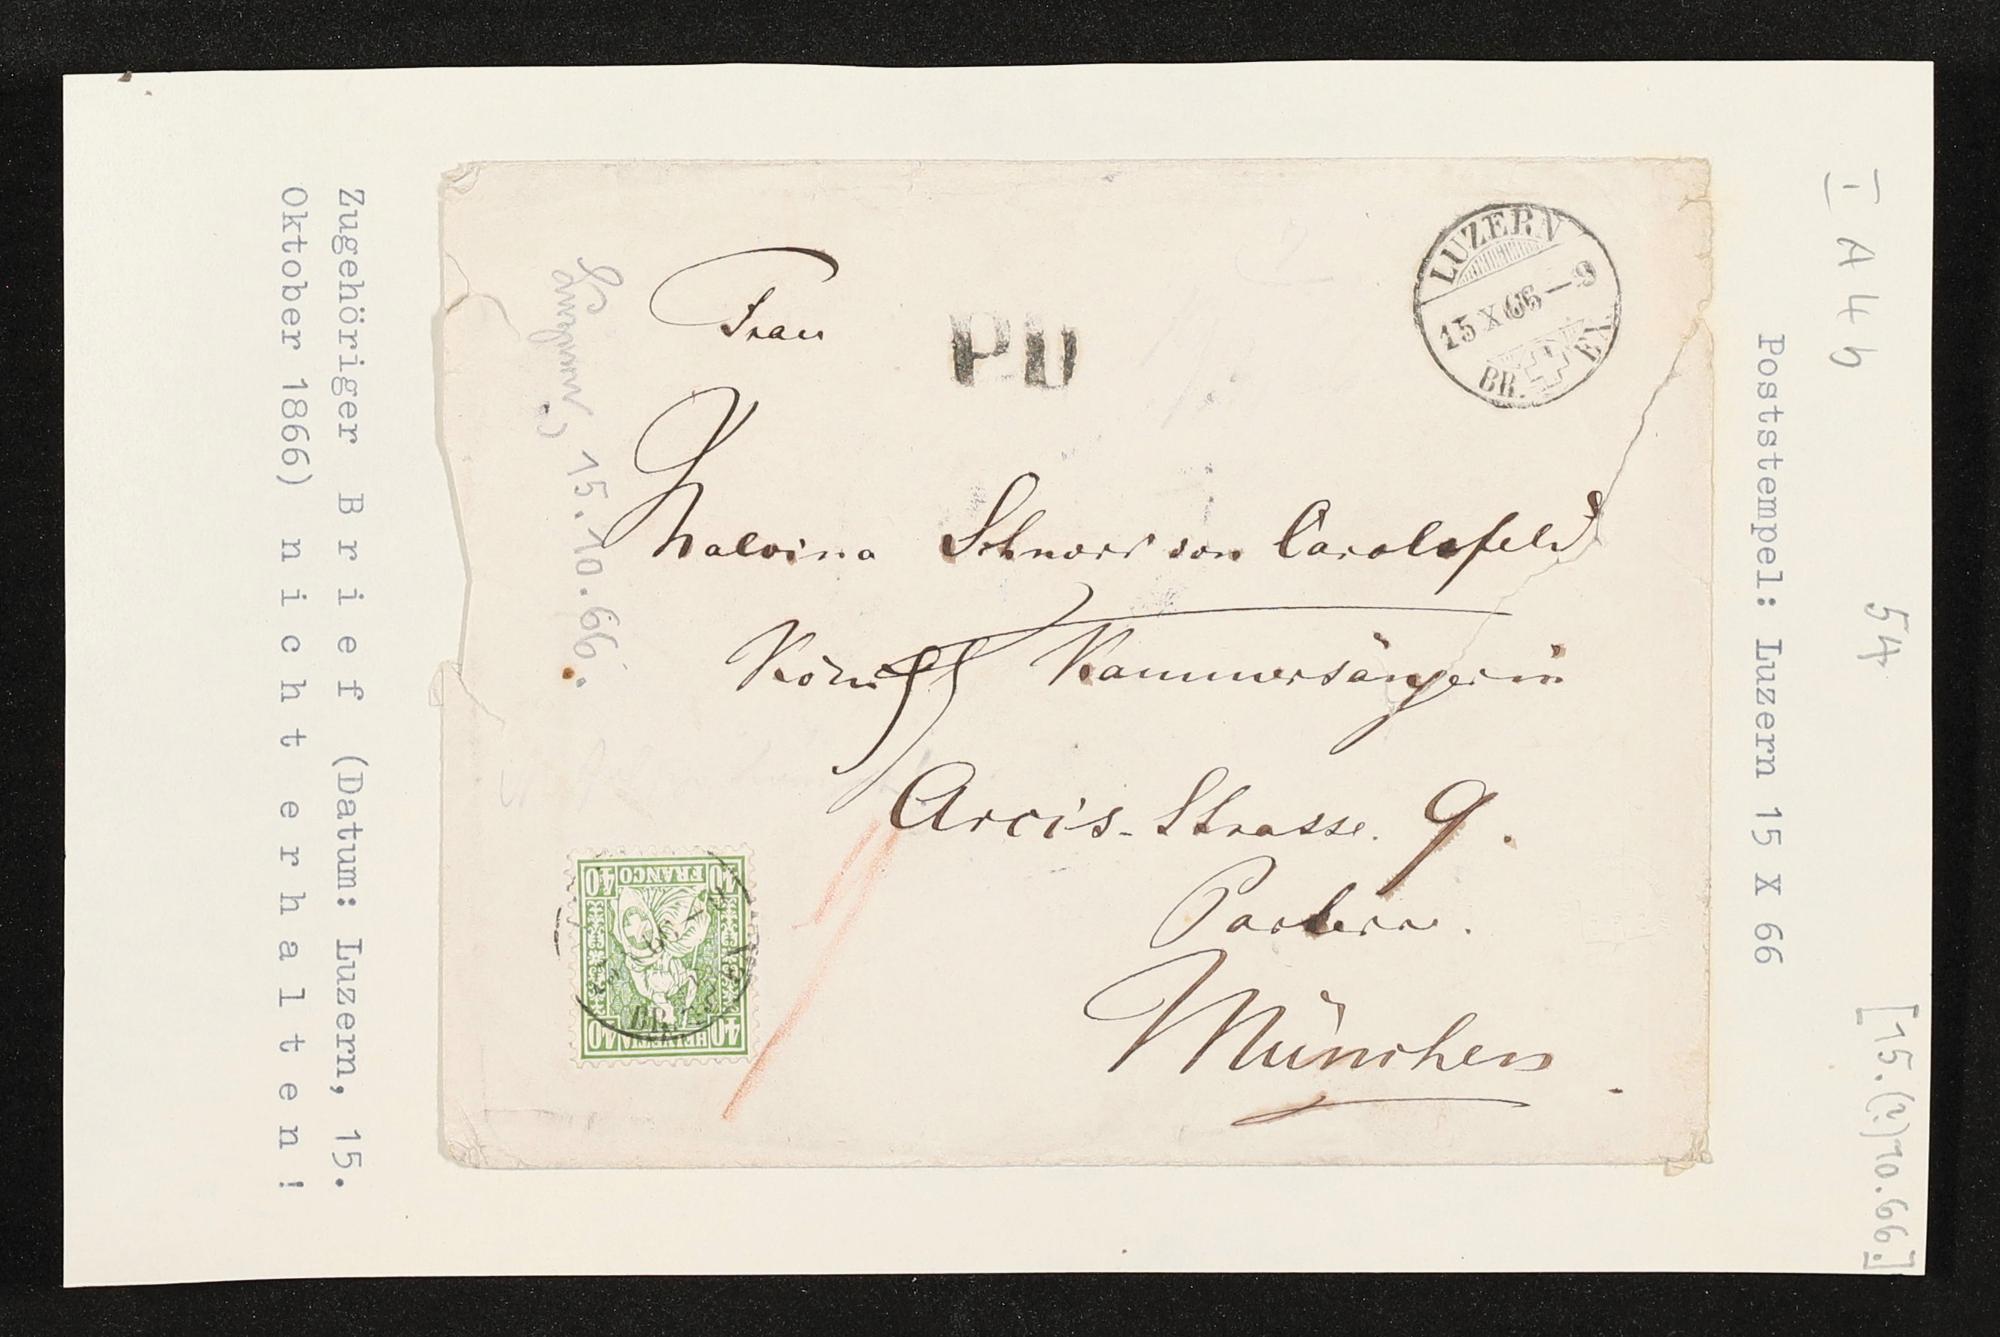 I A 4 h
54
[15.(?)10.66.]
Poststempel: Luzern 15 X 66
LUZERN
15 X 66 — 9
BR. EX
PD
Frau
Malvina Schnorr von Carolsfeld
Königl Kammersängerin
Arcis-Strasse. 9.
Parterre.
München
15.10.66.
40 FRANCO 40
40 HELVETIA 40
Zugehöriger Brief (Datum: Luzern, 15.
Oktober 1866) nicht erhalten!